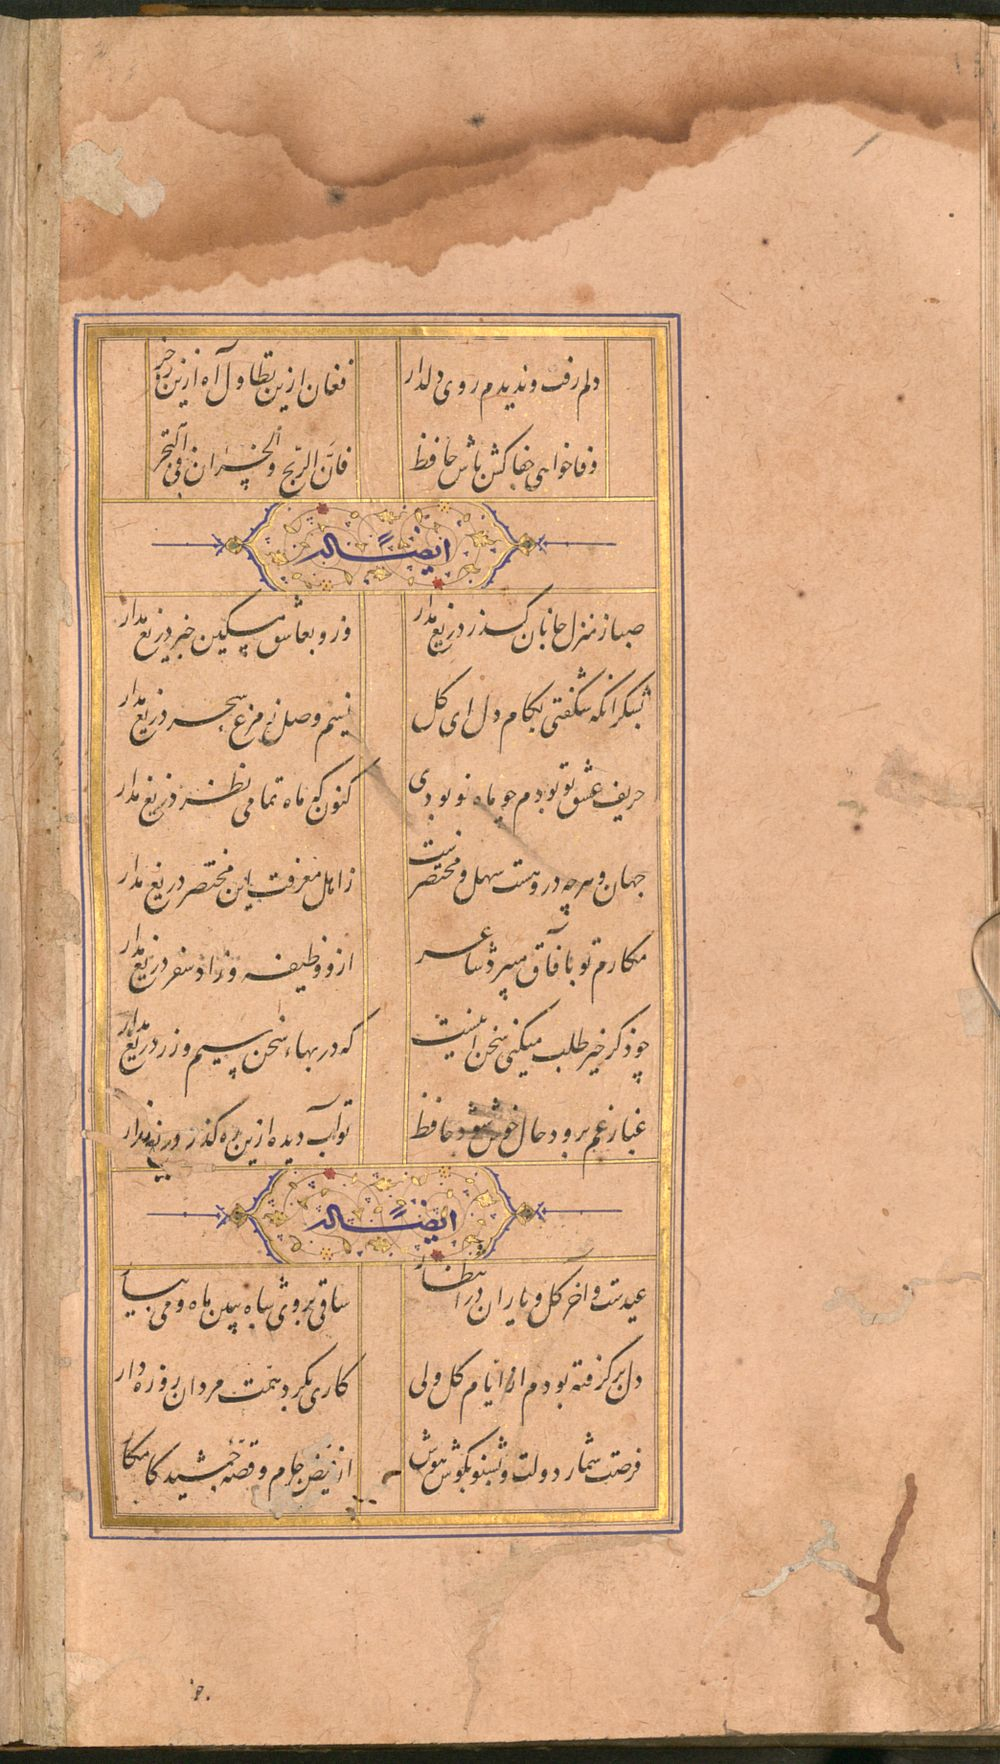 دلم رفت و ندیدم روی دلدار فغان ازین تطاول آه ازین زجر
وفا خواهی جفاکش باش حافظ فانّ الربح والخسران فی التجر
ایضاً له
صبا ز منزل جانان کذر دریغ مدار وزو بعاشق مسکین خبر دریغ مدار
بشکر انکه شکفتی بکام دل ای کل نسیم وصل ز مرغ سحر دریغ مدار
حریف عشق تو بودم چو ماه نو بودی کنون که ماه تمامی نظر دریغ مدار
جهان و هرچه دروهست سهل و مختصرست ز اهل معرفت این مختصر دریغ مدار
مکارم تو بآفاق میبرد شاعر ازو وظیفه و زاد سفر دریغ مدار
چو ذکر خیر طلب میکنی سخن اینست که در بهاء سخن سیم و زر دریغ مدار
غبار غم برود حال خوش شود حافظ تو آب دیده ازین ره کذر دریغ مدار
ایضاً له
عیدست و آخر کل و یاران در انتظار ساقی بروی شاه ببین ماه و می بیار
دل برکرفته بودم از ایام کل ولی کاری بکرد همت مردان روزه دار
فرصت شمار دولت و بشنو بکوش هوش از فیض جام و قصه جمشید کامکار